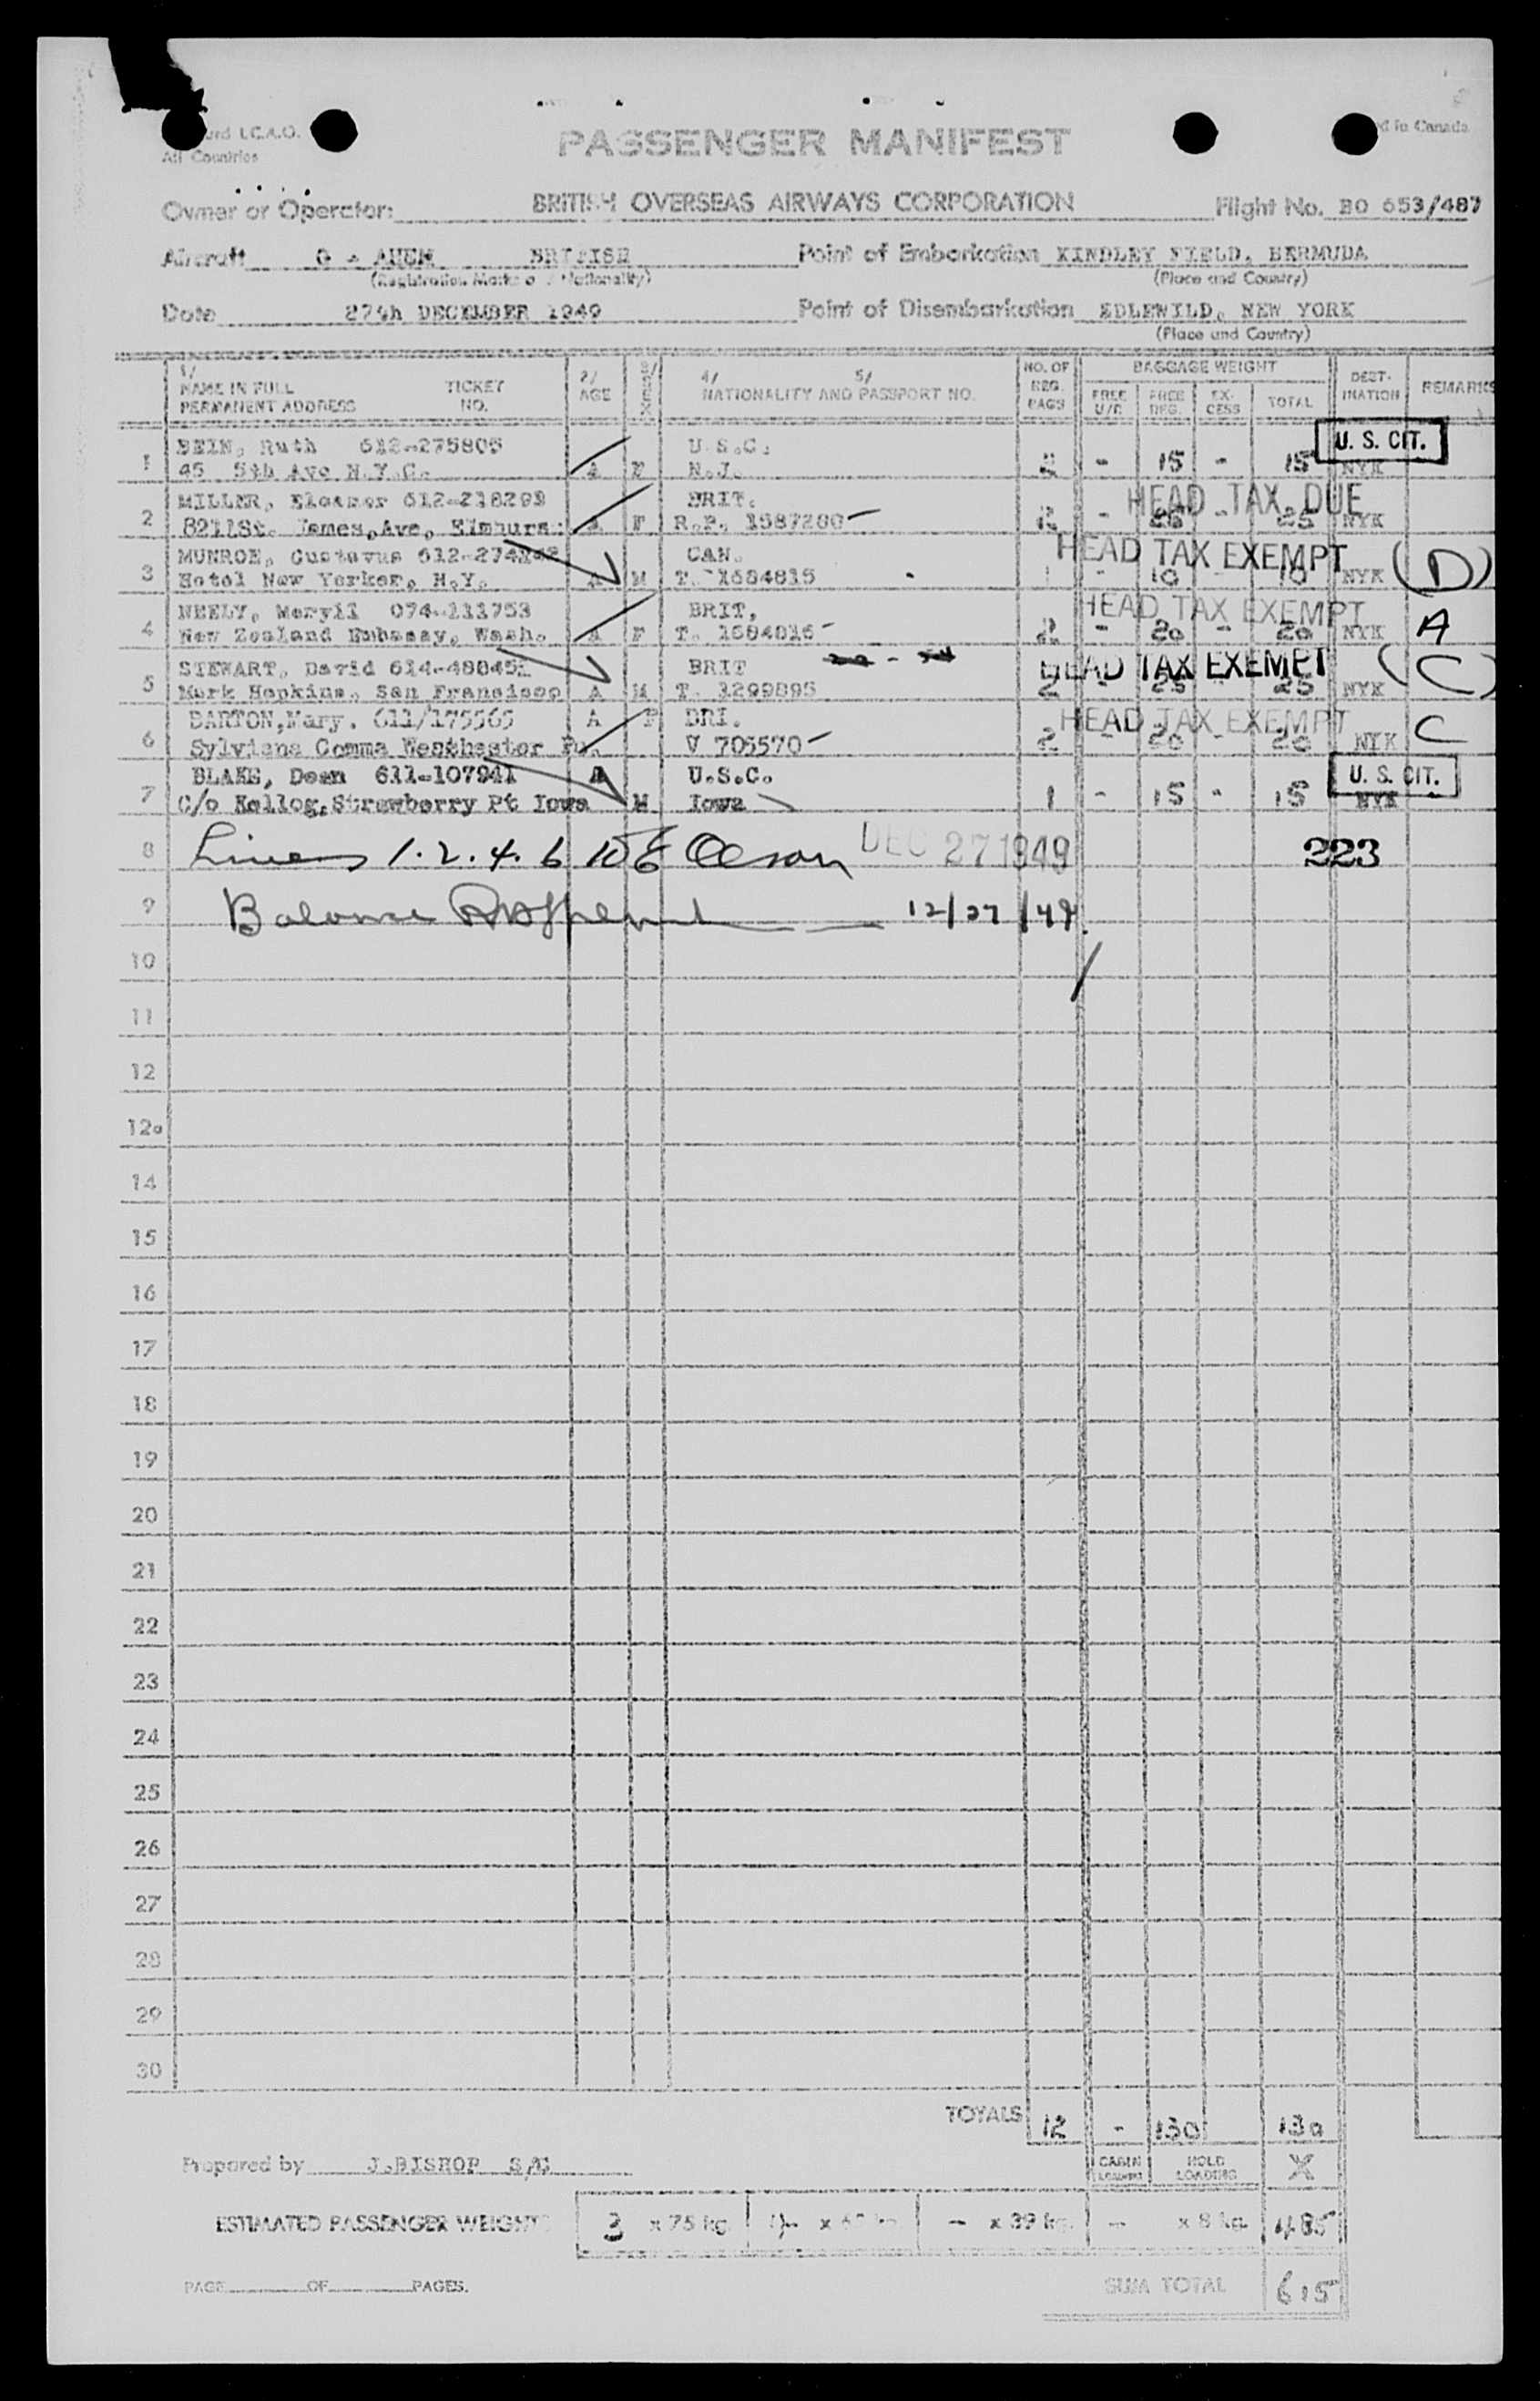 ard I.C.A.O.
All Countries
PASSENGER MANIFEST
d in Canada
Owner or Operator: BRITISH OVERSEAS AIRWAYS CORPORATION Flight No. BO 653/487
Aircraft G - AHEM BRITISH Point of Embarkation KINDLEY FIELD, BERMUDA
(Registration Marks and Nationality) (Place and Country)
Date 27th DECEMBER 1949 Point of Disembarkation EDLEWILD, NEW YORK
(Place and Country)
1/ NAME IN FULL PERMANENT ADDRESS TICKET NO. 2/ AGE 3/ SEX 4/ 5/ NATIONALITY AND PASSPORT NO. NO. OF REG. BAGS BAGGAGE WEIGHT FREE U/C FREE REG. EX-CESS TOTAL DEST-INATION REMARKS
1 BEIN, Ruth 612-275805 U.S.C. U. S. CIT.
45 5th Ave N.Y.C. A F N.J. 2 - 15 - 15 NYK
2 MILLER, Eleanor 612-218298 BRIT. HEAD TAX DUE
8211St. James,Ave, Elmhurst A F R.P. 1587200 2 - 25 - 25 NYK
3 MUNROE, Gustavus 612-274142 CAN. HEAD TAX EXEMPT (D)
Hotel New Yorker, N.Y. A M T. 1684815 1 - 10 - 10 NYK
4 NEELY, Meryll 074-111753 BRIT, HEAD TAX EXEMPT A
New Zealand Embassy, Wash. A F T. 1684816 2 - 20 - 20 NYK
5 STEWART, David 614-48845 BRIT HEAD TAX EXEMPT (C)
Mark Hopkins, San Francisco A M T. 1299895 2 - 25 - 25 NYK
6 BARTON,Mary. 611/175565 A F BRI. HEAD TAX EXEMPT C
Sylviana Comma Westhester Pa. V 705570 2 - 20 - 20 NYK
7 BLAKE, Dean 611-107941 A U.S.C. U. S. CIT.
C/o Kellog,Strawberry Pt Iowa M Iowa 1 - 15 - 15 NYK
8 Lines 1.2.4.6 Olson DEC 27 1949 223
9 Balance 12/27/49
10
11
12
12a
14
15
16
17
18
19
20
21
22
23
24
25
26
27
28
29
30
TOTALS 12 - 130 130
Prepared by J.BISHOP CABIN LOADING HOLD LOADING X
ESTIMATED PASSENGER WEIGHTS 3 x 75 kg. 4 x kg. - x 39 kg. - x 8 kg. 485
PAGE OF PAGES. SUM TOTAL 615